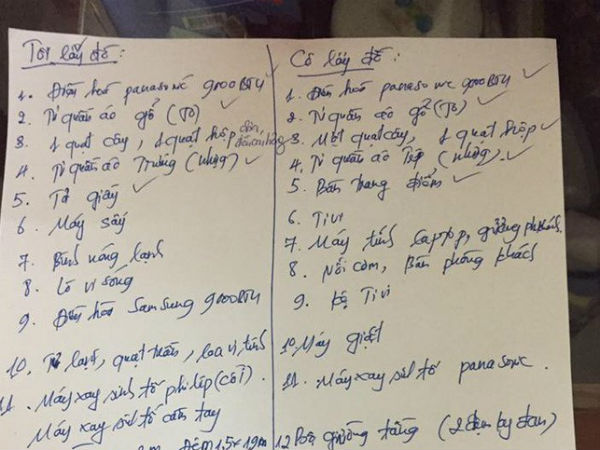 Tôi lấy đồ:
1. Điều hoà panasonic 9000BTU
2. Tủ quần áo gỗ (To)
3. 1 quạt cây, 1 quạt hộp
4. Tủ quần áo Trung (nhựa)
5. Tủ giầy
6. Máy sấy
7. Bình nóng lạnh
8. Lò vi sóng
9. Điều hoà Samsung 9000BTU
10. Tủ lạnh, quạt trần, loa vi tính
11. Máy xay sinh tố philip (cối).
Máy xay sinh tố cầm tay
đệm 1,5 x 1,9m
Cô lấy đồ:
1. Điều hoà panasonic 9000BTU
2. Tủ quần áo gỗ (To)
3. Một quạt cây, 1 quạt hộp
4. Tủ quần áo (nhựa).
5. Bàn trang điểm
6. Tivi
7. Máy tính laptop, giường
8. Nồi cơm, Bàn phòng khách
9. Kệ Tivi
10. Máy giặt
11. Máy xay sinh tố panasonic.
12 giường tầng (2 đệm